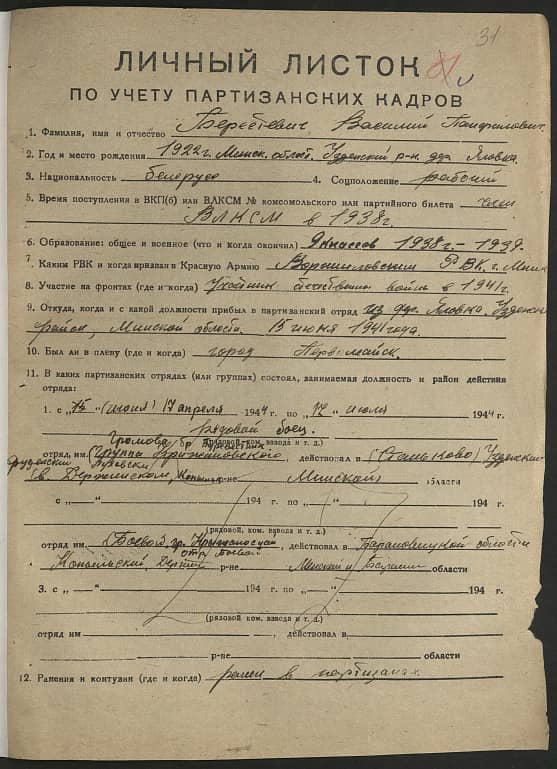 31
ЛИЧНЫЙ ЛИСТОК
ПО УЧЕТУ ПАРТИЗАНСКИХ КАДРОВ
1. Фамилия, имя и отчество Василий
2. Год и место рождения 1922 г. Минск. област. Узденский р-н. д. Яловка.
3. Национальность белорус 4. Соцположение рабочий
5. Время поступления в ВКП(б) или ВЛКСМ № комсомольского или партийного билета член
ВЛКСМ в 1938г.
6. Образование: общее и военное (что и когда окончил) 9 классов 1938 г. – 1939.
7. Каким РВК и когда призван в Красную Армию Ворошиловским РВК. г. Минск
8. Участие на фронтах (где и когда) отечествен войны в 1941 г.
9. Откуда, когда и с какой должности прибыл в партизанский отряд из дер. Яловка. Узденский
район, Минской области. 15 июня 1941 года.
10. Был ли в плену (где и когда) город Первомайск.
11. В каких партизанских отрядах (или группах) состоял, занимаемая должность и район действия
отряда:
1. с „15 “ (июня) 17 апреля 1944 г. по „12“ июля 1944 г.
Рядовой боец.
(рядовой, ком. взвода и т. д.)
отряд им. Громова бр. группа , действовал в Узденский
р-не, Минской области
с „ — “ 194 г. по — „ — “ 194 г.
(рядовой, ком. взвода и т. д.)
отряд им. Боевой гр. отр. Боевой , действовал в Барановичской области
Копыльский, р-не Минской и области
3. с „ — “ 194 г. по — „ — “ 194 г.
(рядовой, ком. взвода и т. д.)
отряд им — действовал в
р-не области
12. Ранения и контузии (где и когда) ранен в партизанах